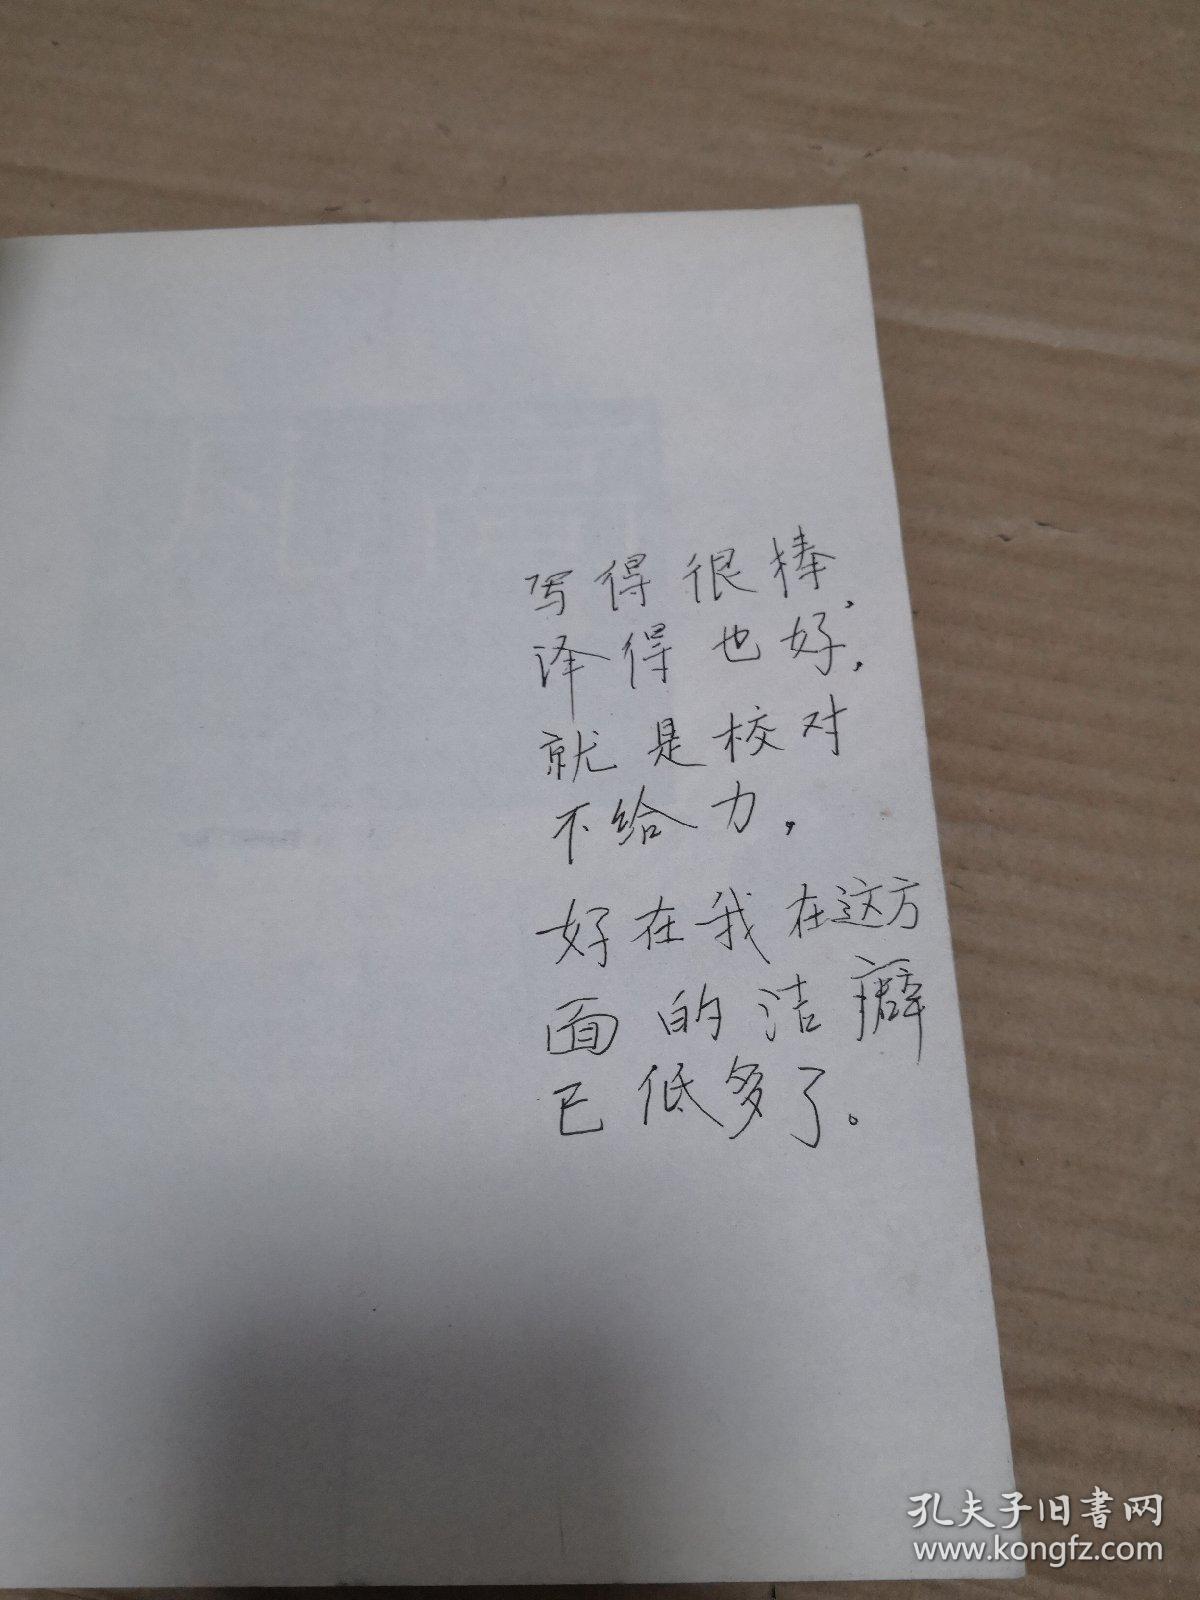 写得很棒，
译得也好，
就是校对
不给力，
好在我在这方
面的洁癖
已低多了。
孔夫子旧書网
www.kongfz.com